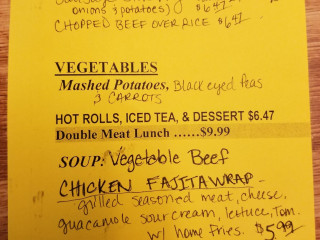 onions & potatoes) $6.47
CHOPPED BEEF OVER RICE $6.47
VEGETABLES
Mashed Potatoes, Black eyed Peas
& CARROTS
HOT ROLLS, ICED TEA, & DESSERT $6.47
Double Meat Lunch ......$9.99
SOUP: Vegetable Beef
CHICKEN FAJITA WRAP -
grilled seasoned meat, cheese,
guacamole sour cream, lettuce, Tom.
w/ home fries. $5.99